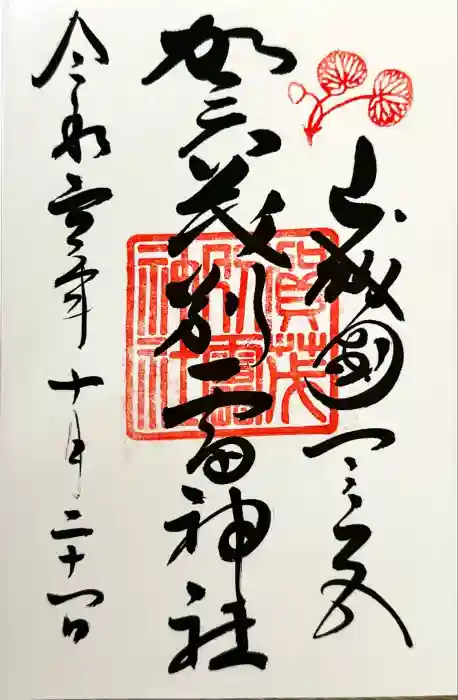 山城國一之宮
賀茂別雷神社
令和年十月二十日
賀茂
別雷
神社